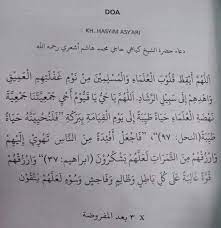 DOA
KH. HASYIM ASY'ARI
دعاء حضرة الشيخ كياهي حاجي محمد هاشم أشعري رحمه الله
اَللّٰهُمَّ أَيْقِظْ قُلُوْبَ الْعُلَمَاءِ وَالْمُسْلِمِيْنَ مِنْ نَوْمِ غَفْلَتِهِمُ الْعَمِيْقِ
وَاهْدِهِمْ إِلَى سَبِيْلِ الرَّشَادِ. اَللّٰهُمَّ يَا حَيُّ يَا قَيُّوْمُ أَحْيِ جَمْعِيَّتَنَا جَمْعِيَّةَ
نَهْضَةِ الْعُلَمَاءِ حَيَاةً طَيِّبَةً إِلَى يَوْمِ الْقِيَامَةِ بِبَرَكَةِ "فَلَنُحْيِيَنَّهُ حَيَاةً
طَيِّبَةً (النحل: ٩٧)"، "فَاجْعَلْ أَفْئِدَةً مِنَ النَّاسِ تَهْوِيْ إِلَيْهِمْ
وَارْزُقْهُمْ مِنَ الثَّمَرَاتِ لَعَلَّهُمْ يَشْكُرُوْنَ (ابراهيم: ٣٧)" وَارْزُقْهُمْ
قُوَّةً غَالِبَةً عَلَى كُلِّ بَاطِلٍ وَظَالِمٍ وَفَاحِشٍ وَسُوْءٍ لَعَلَّهُمْ يَتَّقُوْنَ
٣ x بعد المفروضة